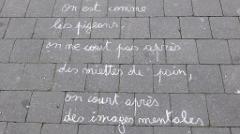 on est comme
les pigeons.
on ne court pas après
des miettes de pain,
on court après
des images mentales